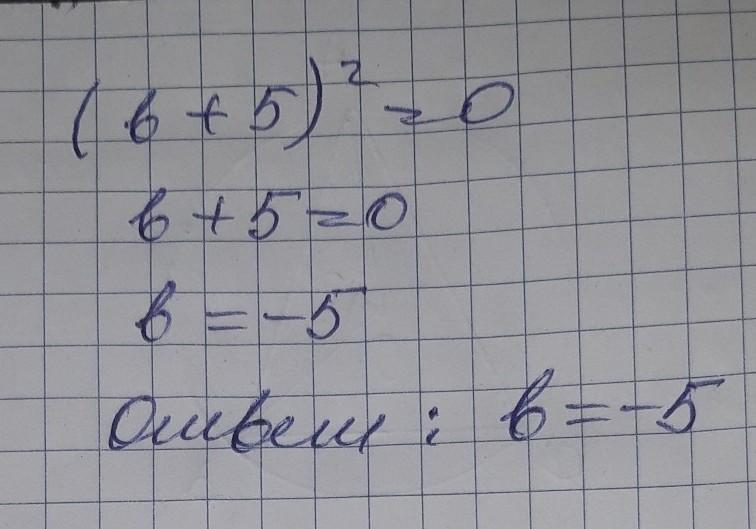 (b + 5)² = 0
b + 5 = 0
b = -5
Ответ: b = -5